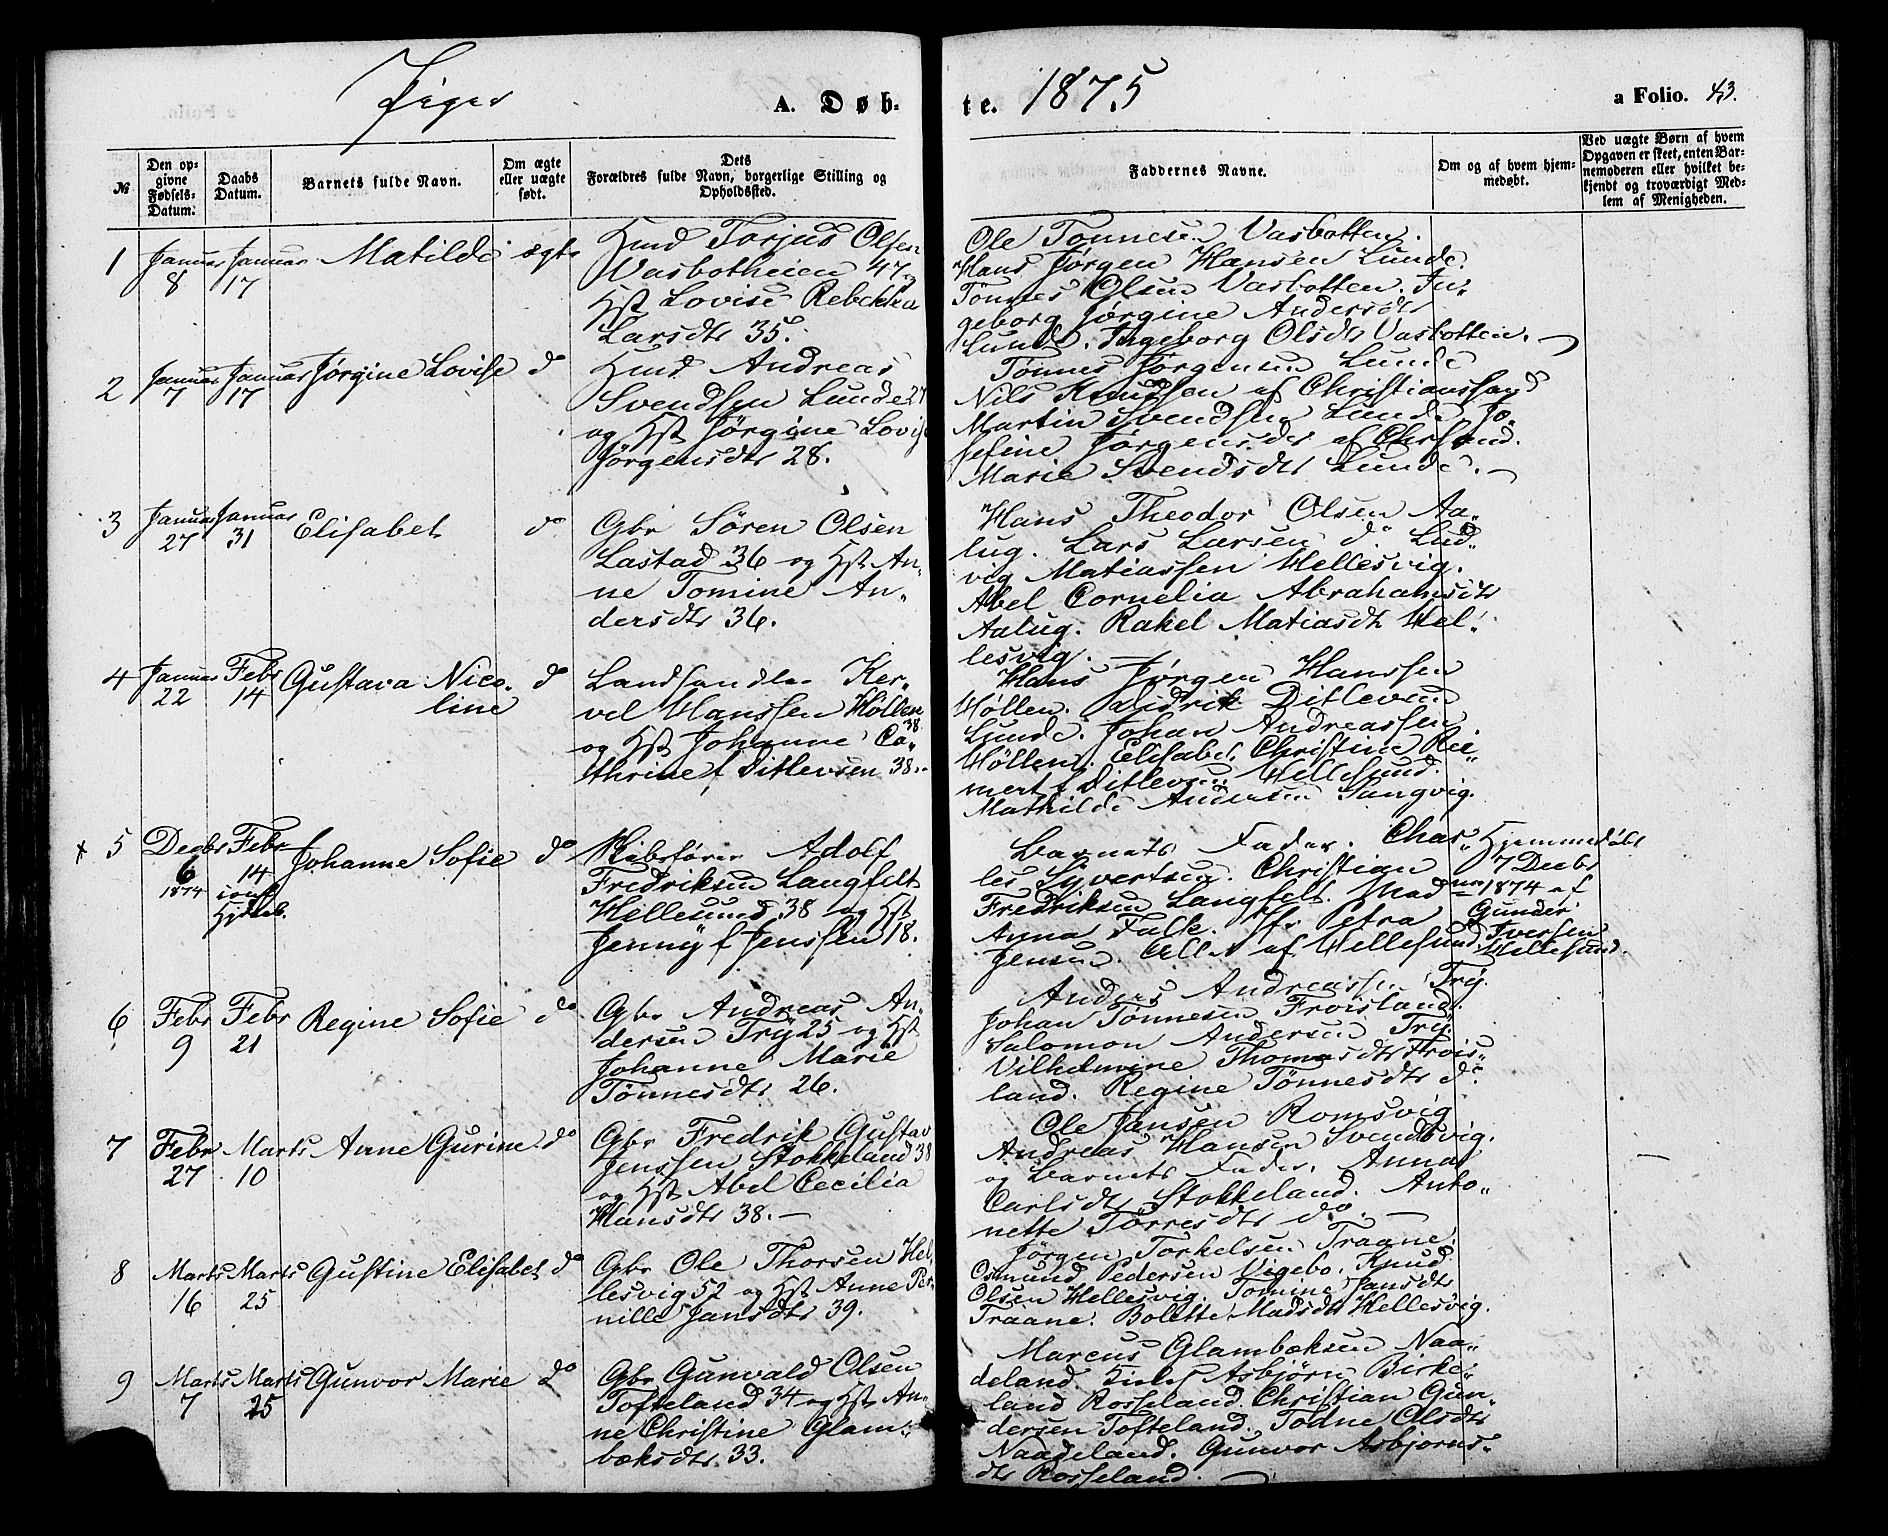 Piger A. Døb-
te. 1875 a Folio. 43.
№
Den op-
givne
Fødsels-
Datum.
Daabs
Datum.
Barnets fulde Navn.
Om ægte
eller uægte
født.
Dets
Forældres fulde Navn, borgerlige Stilling og
Opholdssted.
Faddernes Navne.
Om og af hvem hjem-
medøbt.
Ved uægte Børn af hvem
Opgaven er skeet, enten Bar-
nemoderen eller hvilket be-
kjendt og troværdigt Med-
lem af Menigheden.
1 Januar Januar Matilde ægte
8 17
Hmd Torjus Olsen
Vasbotheien 47 og
Hst Lovise Rebekka
Larsdtr 35.
Ole Tønnesen Vasbotten.
Hans Jørgen Hansen Lunde.
Tønnes Olsen Vasbotten. In-
geborg Jørgine Andersdtr
Lunde. Ingeborg Olsdtr Vasbotten. —
2 Januar Januar Jørgine Lovise do
7 17
Hmd Andreas
Svendsen Lunde 27
og Hst Jørgine Lovise
Jørgensdtr 28.
Tønnes Jørgensen Lunde
Nils Knudsen af Christianssand
Martin Svendsen Lunde. Jo-
sefine Jørgensdtr af Chrsand.
Marie Svendsdtr Lunde. —
3 Januar Januar Elisabet do
27 31
Gbr Søren Olsen
Lastad 36 og Hst An-
ne Tomine An-
dersdtr 36.
Hans Theodor Olsen Aa-
lug. Lars Larsen do Lud-
vig Matiassen Hellesvig.
Abel Cornelia Abrahamsdtr
Aalug. Rakel Matiasdtr Hel-
lesvig. —
4 Januar Febr Gustava Nico- do
22 14 line
Landhandler Ker-
vel Hanssen Høllen
38
og Hst Johanne Ca-
thrine f Ditlevsen 38.
Hans Jørgen Hanssen
Høllen. Didrik Ditlevsen
Lunde. Johan Andreassen
Høllen. Elisabet Christine Rei-
mert f Ditlevsen Hellesund.
Mathilde Andersen Langvig.
x 5 Decbr Febr Johanne Sofie do
6 14
1874
conf
Hjdaab.
Skibsfører Adolf
Fredriksen Langfelt
Hellesund 38 og Hst
Jenny f Jenssen 18.
Barnets Fader. Char-
les Syvertsen. Christian
Fredriksen Langfelt. Mad
Anna Falk. Jfr Petra
Jensen. Alle af Hellesund.
Hjemmedøbt
7 Decbr
1874 af
Gunder
Iversen
Hellesund.
6 Febr Febr Regine Sofie do
9 21
Gbr Andreas An-
dersen Try 25 og Hst
Johanne Marie
Tønnesdtr 26.
Anders Andreassen Try.
Johan Tønnesen Froisland.
Salomon Andersen Try.
Vilhelmine Thomasdtr Frois-
land. Regine Tønnesdtr do.
7 Febr Marts Anne Gurine do
27 10
Gbr Fredrik Gustav
Jenssen Stokkeland 38
og Hst Abel Cecilia
Hansdtr 38. —
Ole Jansen Romsvig
Andreas Hansen Svendsvig.
og Barnets Fader. Anna
Carlsdtr Stokkeland. Anto-
nette Tørresdtr do. —
8 Marts Marts Gustine Elisabet do
16 25
Gbr Ole Thorsen Hel-
lesvig 52 og Hst Anne Per-
nille Jansdtr 39.
Jørgen Torkelsen Traane.
Osmund Pedersen Vigebo. Knud
Olsen Hellesvig. Tomine Jansdtr
Traane. Bolette Madsdtr Hellesvig.
9 Marts Marts Gunvor Marie do
7 25
Gbr Gunvald Olsen
Tofteland 34 og Hst An-
ne Christine Glam-
bæksdtr 33.
Marcus Glambæksen Naa-
deland. Asbjørn Birke-
land Rosseland. Christian Gun-
dersen Tofteland. Todne Olsdtr
Naadeland. Gunvor Asbjørns-
dtr Rosseland. —